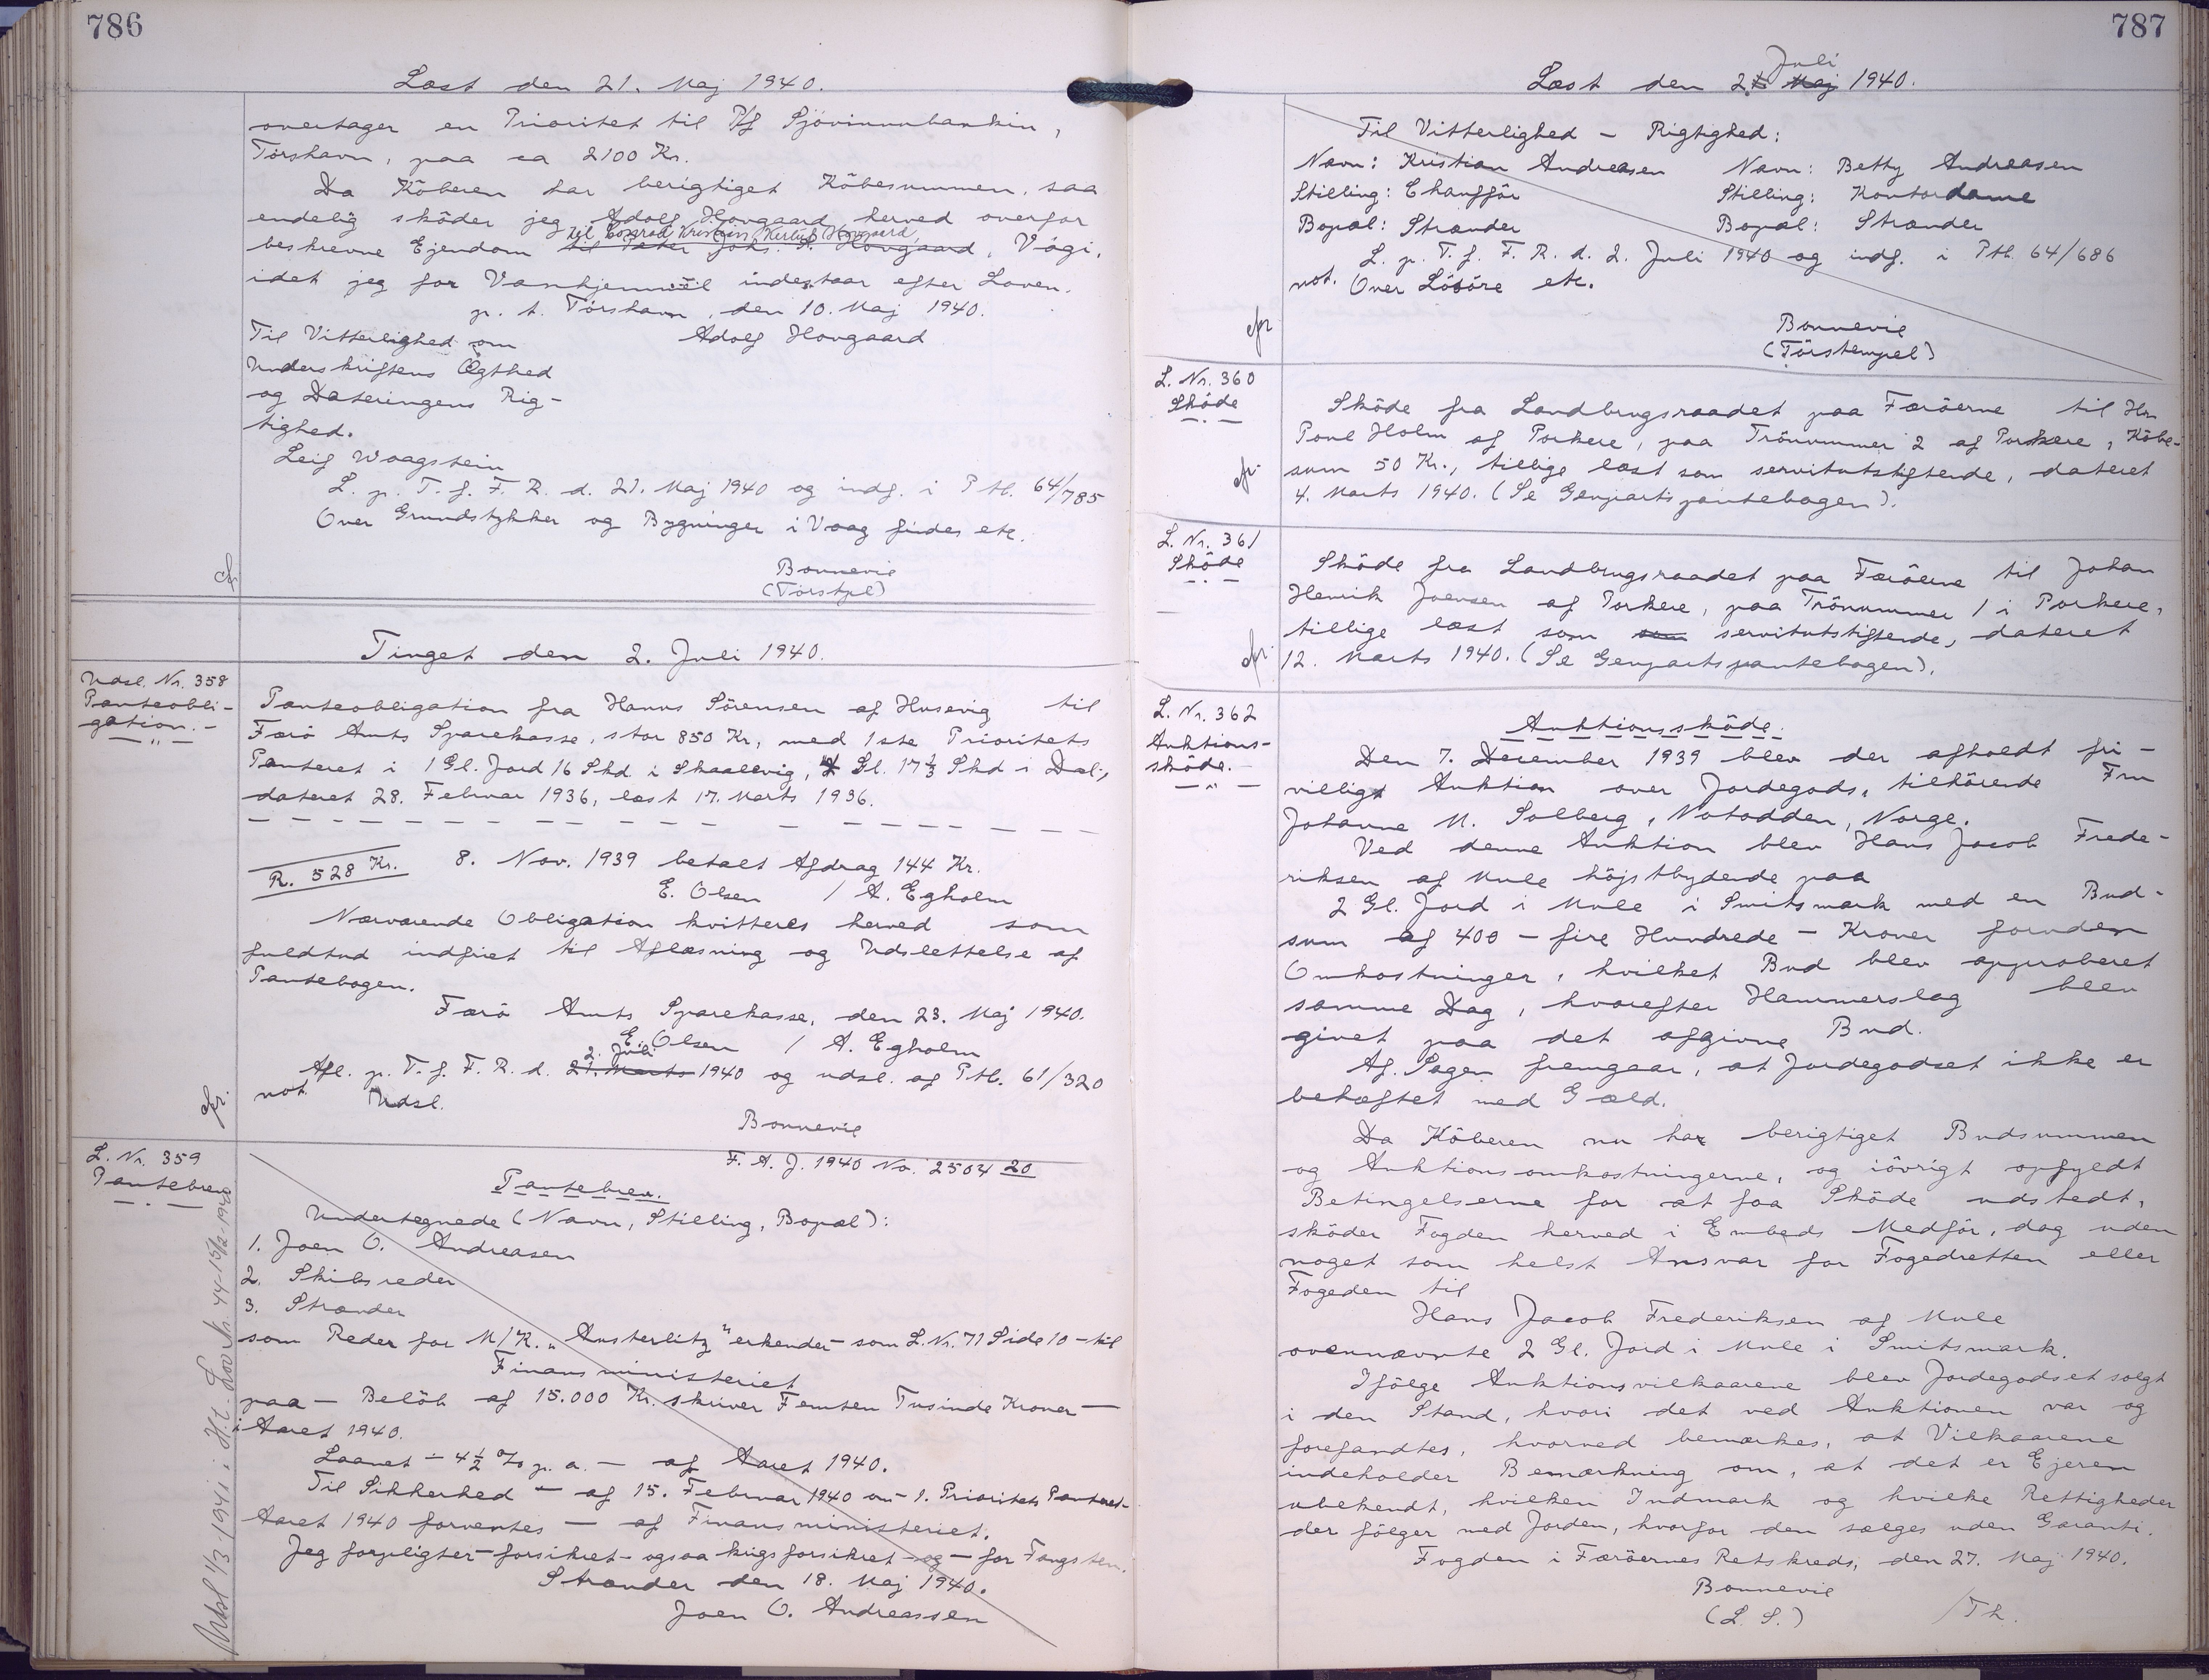 786
Læst den 21. Maj 1940.
overtager en Prioritet til P/f Sjóvinnubankin,
Tórshavn, paa ca 2100 Kr.
Da Köberen har berigtiget Köbesummen, saa
endelig sköder jeg Adolf Hovgaard herved overfor
til Conrad Kristian Kertup Hovgaard,
beskrevne Ejendom til Peter Johs. A. Hovgaard, Vági,
idet jeg for Vanhjemmel indestaar efter Loven.
p. t. Tórshavn, den 10. Maj 1940.
Til Vitterlighed om Adolf Hovgaard
Underskriftens Ægthed
og Dateringens Rig-
tighed.
Leif Waagstein
L. p. T. f. F. R. d. 21. Maj 1940 og indf. i Ptb. 64/785
Over Grundstykker og Bygninger i Vaag findes etc.
Bonnevie
(Torstpl)
cfr.
Tinget den 2. Juli 1940.
Udsl. Nr. 358
Panteobli-
gation.-
Panteobligation fra Hanus Sörensen af Husevig til
Færö Amts Sparekasse, stor 850 Kr, med 1ste Prioritets
Panteret i 1 Gl. Jord 16 Skd. i Skaalevig, 4 Gl. 17 1/3 Skd i Dal.,
dateret 28. Februar 1936, læst 17. Marts 1936.
R. 528 Kr. 8. Nov. 1939 betalt Afdrag 144 Kr.
E. Olsen / A. Egholm
Nærværende Obligation kvitteres herved som
fuldtud indfriet til Aflæsning og Udslettelse af
Pantebogen.
Færö Amts Sparekasse, den 23. Maj 1940.
E. Olsen / A. Egholm
2. Juli
Afl. p. T. f. F. R. d. 21. Marts 1940 og udsl. af Ptb. 61/320
not. Udsl.
Bonnevie
cfr.
L. Nr. 359
Pantebrev
F. A. J. 1940 No. 2504 20
Pantebrev.
Undertegnede (Navn, Stilling, Bopæl):
1. Joen O. Andreasen
2. Skibsreder
3. Strænder
som Reder for M/K. "Austerlitz" erkender - som L. Nr. 71 Side 10 - til
Finansministeriet
paa - Beløb af 15.000 Kr. skriver Femten Tusinde Kroner -
i Aaret 1940.
Laanet - 4 1/2 % p. a. - af Aaret 1940.
Til Sikkerhed - af 15. Februar 1940 om - 1. Prioritets Panteret-
Aaret 1940 forventes - af Finansministeriet.
Jeg forpligter - forsikret - ogsaa krigsforsikret - og - for Fangsten.
Strænder den 18. Maj 1940.
Joen O. Andreassen
Udsl 1/3 1941 i H. t. Lov Nr 44 - 15/2-1940
787
Juli
Læst den 2. Maj 1940.
Til Vitterlighed - Rigtighed:
Navn: Kristian Andreasen Navn: Betty Andreasen
Stilling: Chauffør Stilling: Kontordame
Bopæl: Strænder Bopæl: Strænder
L. p. T. f. F. R. d. 2. Juli 1940 og indf. i Ptb. 64/686
not. Over Lösöre etc.
Bonnevie
(Tórstempel)
cfr
L. Nr. 360
Sköde
Sköde fra Landbrugsraadet paa Færöerne til Hr.
Poul Holm af Porkere, paa Trönummer 2 af Porkere, Köbe-
sum 50 Kr., tillige læst som servitutstiftende, dateret
4. Marts 1940. (Se Genpartspantebogen).
cfr
L. Nr. 361
Sköde
Sköde fra Landbrugsraadet paa Færöerne til Johan
Henrik Joensen af Porkere, paa Trönummer 1 i Porkere,
tillige læst som som servitutstiftende, dateret
12. Marts 1940. (Se Genpartspantebogen).
cfr
L. Nr. 362
Auktions-
sköde.
Auktionssköde.
Den 7. December 1939 blev der afholdt fri-
villig Auktion over Jordegods, tilhörende Fru
Johanne M. Solberg, Notodden, Norge.
Ved denne Auktion blev Hans Jacob Frede-
riksen af Mule höjstbydende paa
2 Gl. Jord i Mule i Smitsmark med en Bud-
sum af 400 - fire Hundrede - Kroner foruden
Omkostninger, hvilket Bud blev approberet
samme Dag, hvorefter Hammerslag blev
givet paa det afgivne Bud.
Af Sagen fremgaar, at Jordegodset ikke er
behæftet med Gæld.
Da Köberen nu har berigtiget Budsummen
og Auktionsomkostningerne, og iövrigt opfyldt
Betingelserne for at faa Sköde udstedt,
sköder Fogden herved i Embeds Medför, dog uden
noget som helst Ansvar for Fogedretten eller
Fogeden til
Hans Jacob Frederiksen af Mule
ovennævnte 2 Gl. Jord i Mule i Smitsmark.
Ifölge Auktionsvilkaarene blev Jordegodset solgt
i den Stand, hvori det ved Auktionen var og
forefandtes, hvorved bemærkes, at Vilkaarene
indeholder Bemærkning om, at det er Ejeren
ubekendt, hvilken Indmark og hvilke Rettigheder
der fölger med Jorden, hvorfor den sælges uden Garanti.
Fogden i Færöernes Retskreds, den 27. Maj 1940.
Bonnevie
(L. S.) /Th.